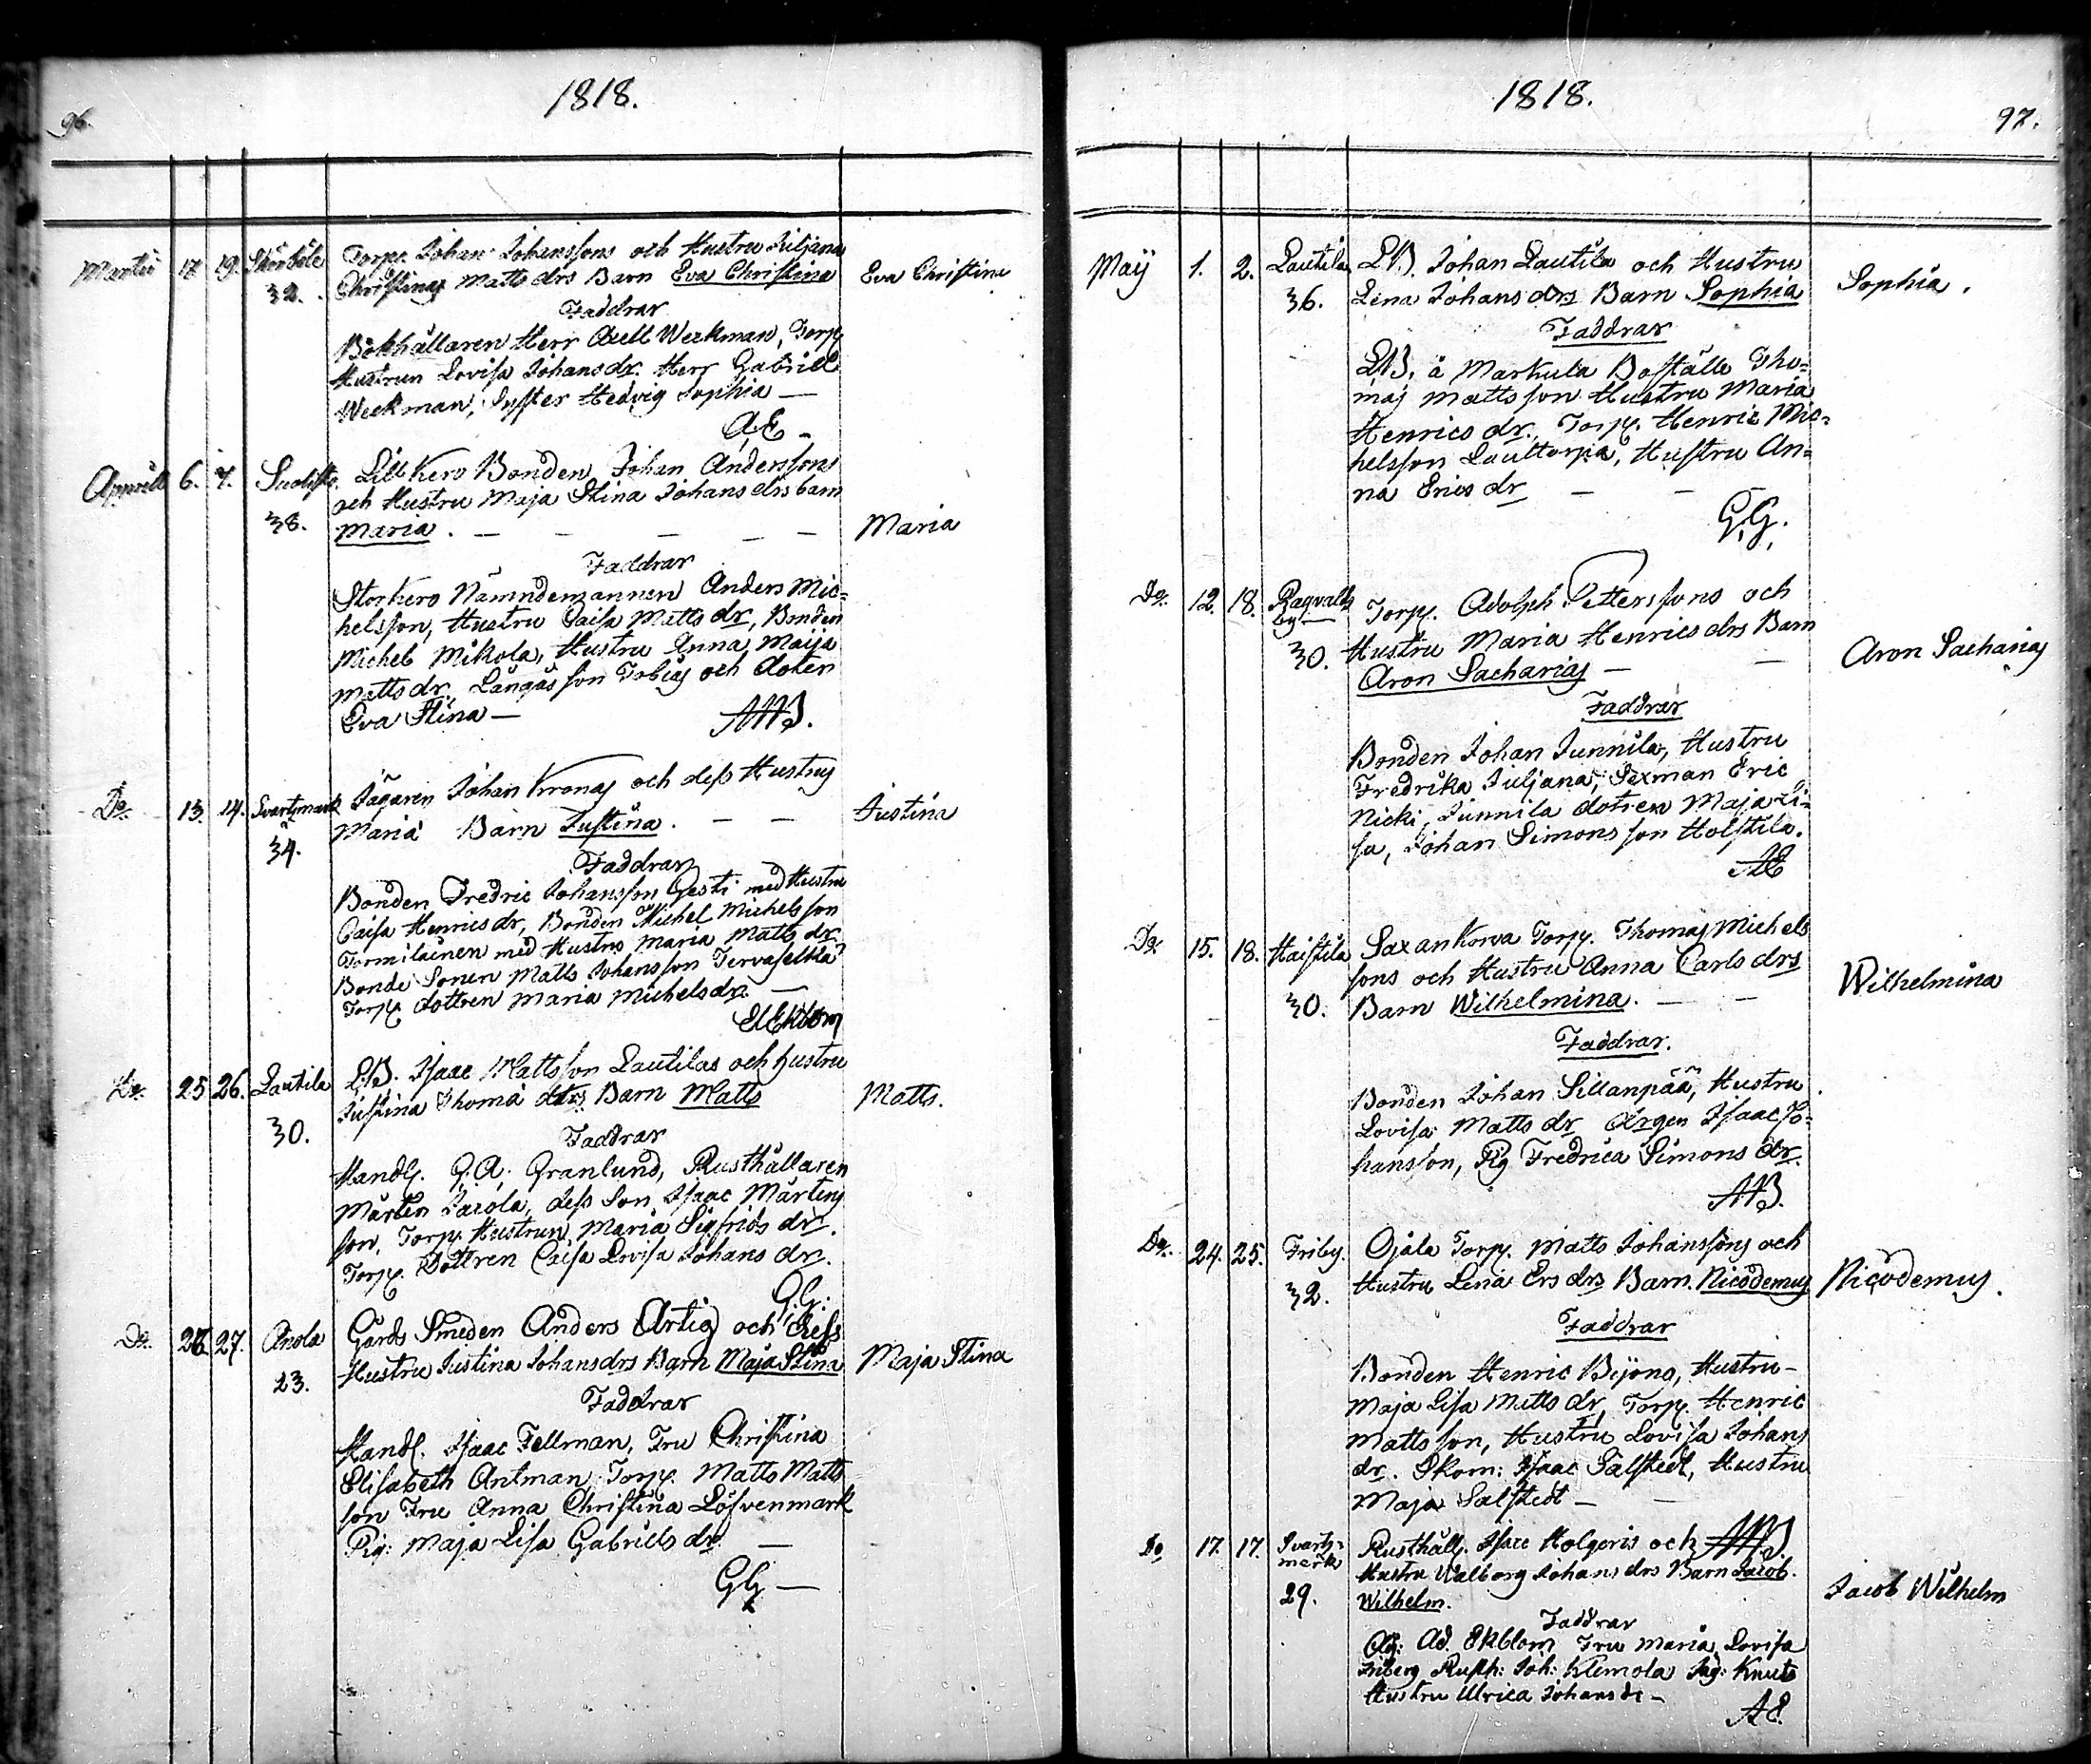 96.
1818.
Martii 17. 19. Skörböle Torp. Johan Johanssons och Hustru Juljana
32. Christinas Matts drs Barn Eva Christina Eva Christina
Faddrar
Bokhållaren Herr Axell Weckman, Torp
Hustrun Lovisa Johansdr. Herr Gabriel
Weckman, Syster Hedvig Sophia —
A.E —
Aprill 6. 7. Suolisto. Lill Kero Bonden Johan Anderssons
och Hustru Maja Stina Johans drs barn
38. Maria. — — — — — Maria
Faddrar
Storkero Nämndemannen Anders Mic=
helsson, Hustru Caisa Matts dr, Bonden
Michel Mikola, Hustru Anna Maija
Matts dr. Långås son Tobias och doter
Eva Stina — AAB.
Do. 13. 14. Svartsmark Jägaren Johan Kronas och dess Hustrus
34. Maria Barn Justina. — — Justina
Faddrar
Bonden Fredric Johansson Gesti med Hustru
Caisa Henrics dr, Bonden Michel Michelsson
Tormilainen med Hustru Maria Matts dr.
Bonde Sonen Matts Johansson Tervaselkä
Torp. dottren Maria Michelsdr. —
Ekblom
Do. 25 26. Lautila LB. Isaac Mattsson Lautilas och hustru
Justina Thoma dtrs Barn Matts Matts.
30.
Faddrar
Handl. G.A. Granlund, Rusthållaren
Mårten Jacola, dess Son Isaac Mårtens
son, Torp. Hustrun Maria Sigfrids dr.
Torp. Dottren Caisa Lovisa Johans dr.
G.G.
Do. 26 27. Anola Gårds Smeden Anders Artig och dess
23. Hustru Justina Johansdrs Barn Maja Stina Maja Stina
Faddrar
Handl. Isaac Fellman, Fru Christina
Elisabeth Antman, Torp. Matts Matts
son Fru Anna Christina Löfvenmark
Pig: Maja Lisa Gabriels dr —
GG —
1818.
97.
Maÿ 1. 2. Lautila LB. Johan Lautila och Hustru
36. Lena Johans drs Barn Sophia Sophia.
Faddrar
LB. å Markula Boställe Tho=
mas Mattsson Hustru Maria
Henrics dr., Torp. Henric Mic=
helsson Lauttorpa, Hustru An=
na Erics dr — — —
G.G.
Do. 12. 18. Ragvalds Torp. Adolph Petterssons och
by
30. Hustru Maria Henrics drs Barn
Aron Sacharias — — Aron Sacharias
Faddrar
Bonden Johan Junnila, Hustru
Fredrika Juljana, Sexman Eric
Nicki, Junnila dotren Maja Li=
sa, Johan Simons son Holstila.
AE
Do. 15. 18. Haistila Saxankorva Torp. Thomas Michels
sons och Hustru Anna Carls drs
30. Barn Wilhelmina. — — Wilhelmina
Faddrar.
Bonden Johan Sillanpää, Hustru
Lovisa Matts dr Drgen Isaac Jo=
hansson, Pig Fredrica Simons dr.
AAB.
Do. 24. 25. Friby. Ojala Torp. Matts Johanssons och
32. Hustru Lena Ers drs Barn. Nicodemus Nicodemus.
Faddrar
Bonden Henric Bijons, Hustru —
Maja Lisa Matts dr, Torp. Henric
Matts son, Hustru Lovisa Johans
dr. Skom: Isaac Salstedt, Hustru
Maja Salstedt — —
AAB
Do 17. 17. Svarts=
mark Rusthåll. Isac Holgeris och
Hustru Walborg Johans drs Barn Jacob
29. Wilhelm. Jacob Wilhelm
Faddrar
Ad. Ekblom Fru Maria Lovisa
Friberg Rusth: Joh: Klemola Jäg: Knuts
Hustru Ulrica Johans dr —
AE.